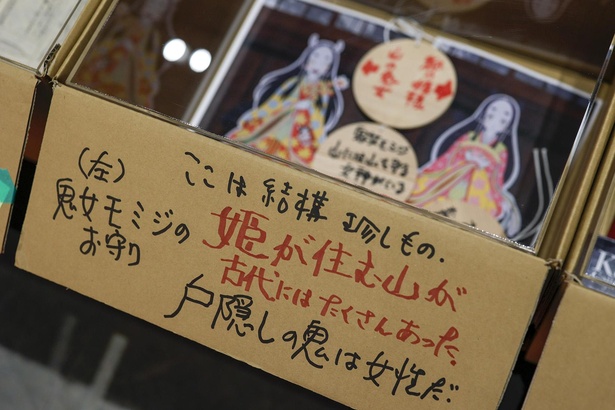 (左)
鬼女モミジの
お守り
ここは結構珍しもの.
姫が住む山が
古代にはたくさんあった.
戸隠しの鬼は女性だ.
山の鬼女
鬼女モミジ
K